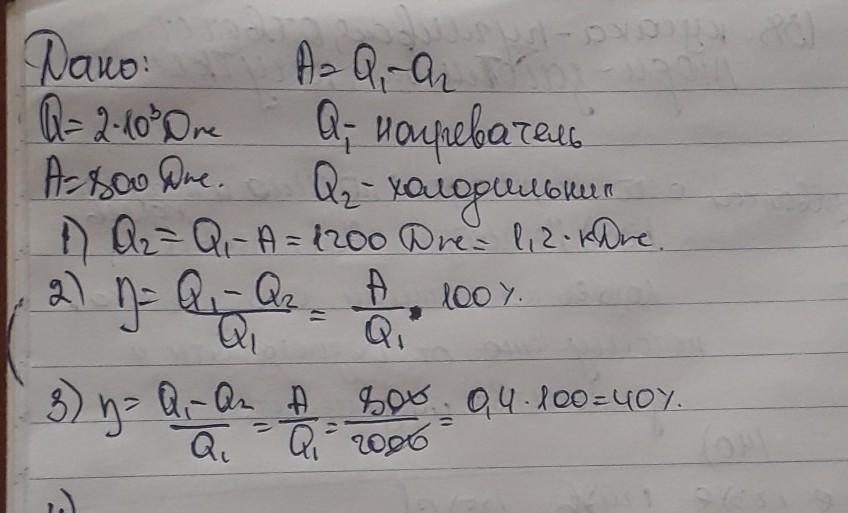 Дано: A = Q₁ - Q₂
Q = 2·10³ Дж Q₁ - нагреватель
A = 800 Дж. Q₂ - холодильник
1) Q₂ = Q₁ - A = 1200 Дж = 1,2·кДж.
2) η = (Q₁ - Q₂)/Q₁ = A/Q₁ · 100%.
3) η = (Q₁ - Q₂)/Q₁ = A/Q₁ = 800/2000 = 0,4·100 = 40%.